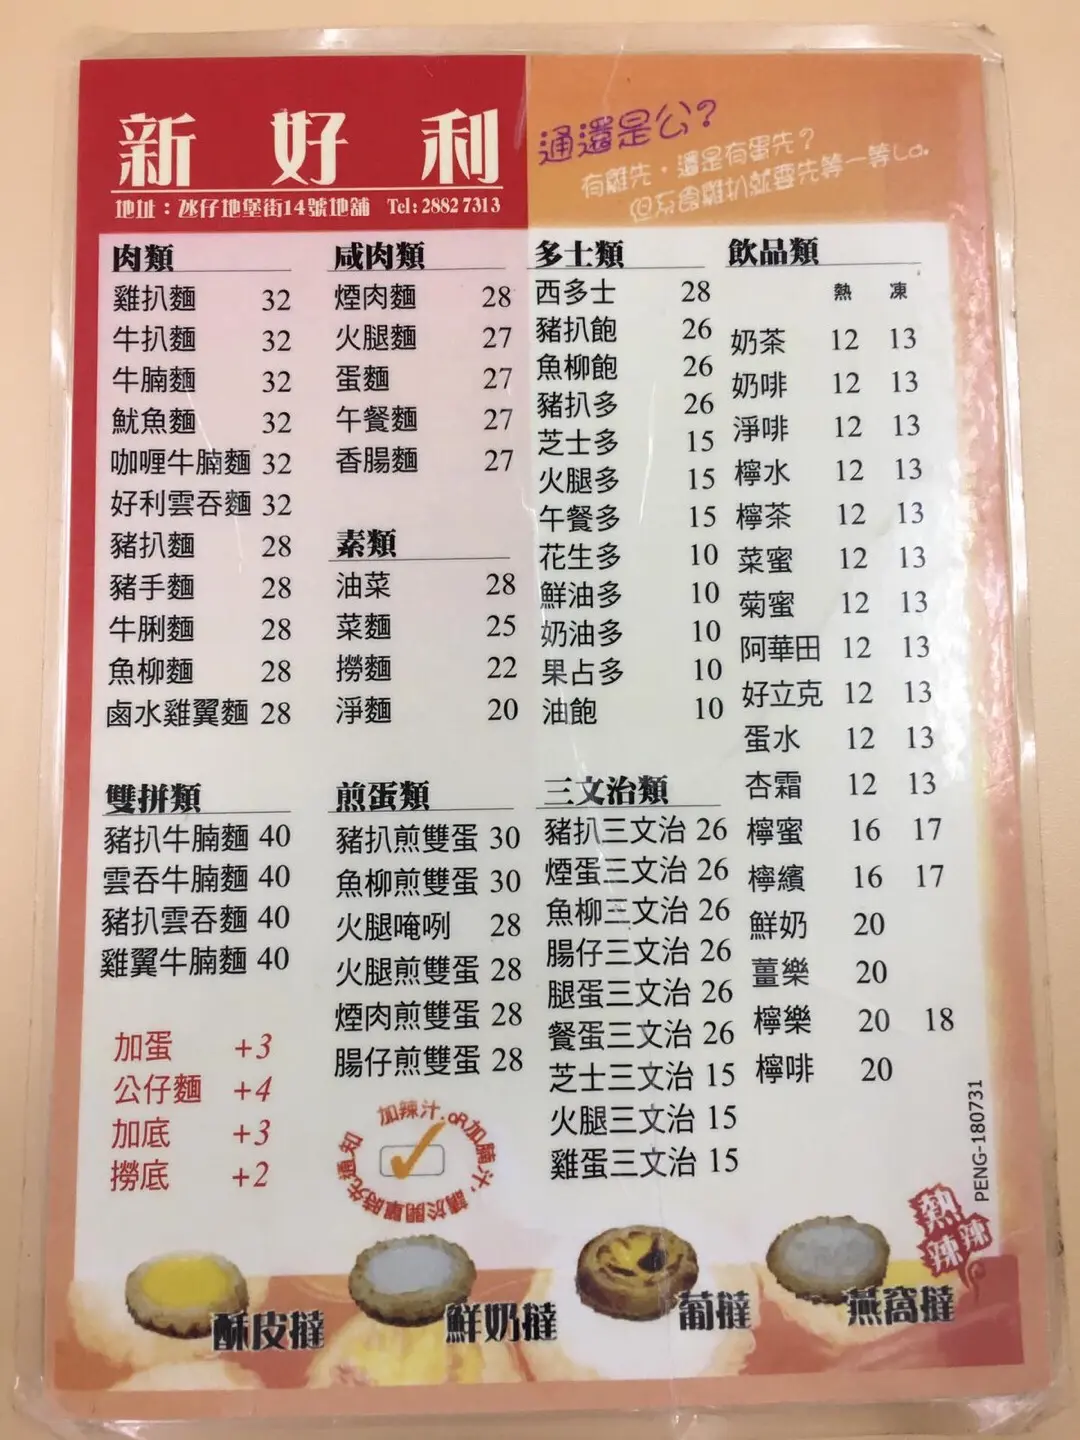 新好利
地址：氹仔地堡街14號地舖 Tel: 2882 7313
通還是公？
有雞先，還是有蛋先？
但系食雞扒就要先等一等La.
肉類
雞扒麵 32
牛扒麵 32
牛腩麵 32
魷魚麵 32
咖喱牛腩麵 32
好利雲吞麵 32
豬扒麵 28
豬手麵 28
牛脷麵 28
魚柳麵 28
鹵水雞翼麵 28
雙拼類
豬扒牛腩麵 40
雲吞牛腩麵 40
豬扒雲吞麵 40
雞翼牛腩麵 40
加蛋 +3
公仔麵 +4
加底 +3
撈底 +2
咸肉類
煙肉麵 28
火腿麵 27
蛋麵 27
午餐麵 27
香腸麵 27
素類
油菜 28
菜麵 25
撈麵 22
淨麵 20
煎蛋類
豬扒煎雙蛋 30
魚柳煎雙蛋 30
火腿唵咧 28
火腿煎雙蛋 28
煙肉煎雙蛋 28
腸仔煎雙蛋 28
加辣汁.oR加腩汁，請於開單時先通知
多士類
西多士 28
豬扒飽 26
魚柳飽 26
豬扒多 26
芝士多 15
火腿多 15
午餐多 15
花生多 10
鮮油多 10
奶油多 10
果占多 10
油飽 10
三文治類
豬扒三文治 26
煙蛋三文治 26
魚柳三文治 26
腸仔三文治 26
腿蛋三文治 26
餐蛋三文治 26
芝士三文治 15
火腿三文治 15
雞蛋三文治 15
飲品類
熱 凍
奶茶 12 13
奶啡 12 13
淨啡 12 13
檸水 12 13
檸茶 12 13
菜蜜 12 13
菊蜜 12 13
阿華田 12 13
好立克 12 13
蛋水 12 13
杏霜 12 13
檸蜜 16 17
檸繽 16 17
鮮奶 20
薑樂 20
檸樂 20 18
檸啡 20
PENG-180731
熱辣辣
酥皮撻
鮮奶撻
葡撻
燕窩撻